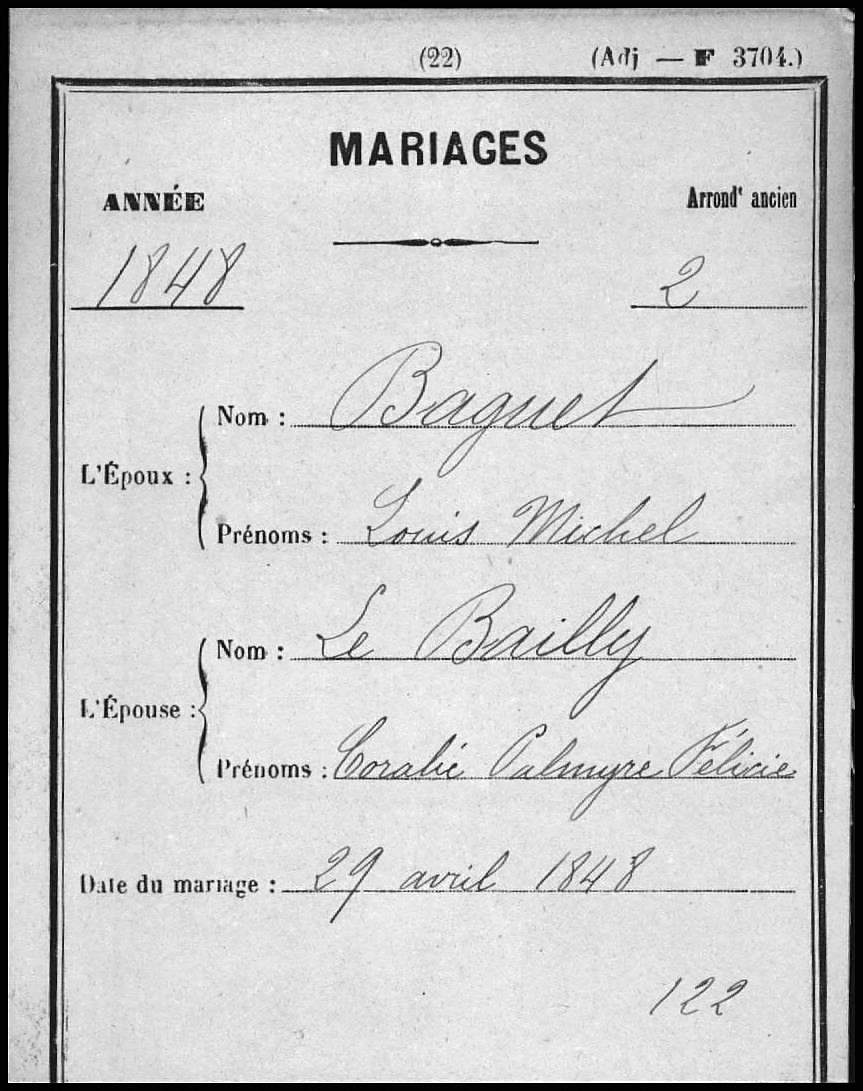 (22) (Adj — F 3704.)
MARIAGES
ANNÉE Arrondt ancien
1848 2
Nom : Baguet
L'Époux :
Prénoms : Louis Michel
Nom : Le Bailly
L'Épouse :
Prénoms : Coralie Palmyre Félicie
Date du mariage : 29 avril 1848
122